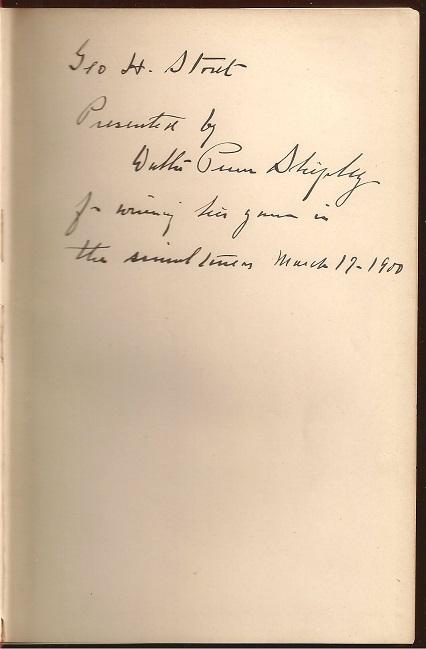 Geo H. Stout
Presented by
Walter Penn Shipley
for winning his game in
the simultaneous March 17-1900